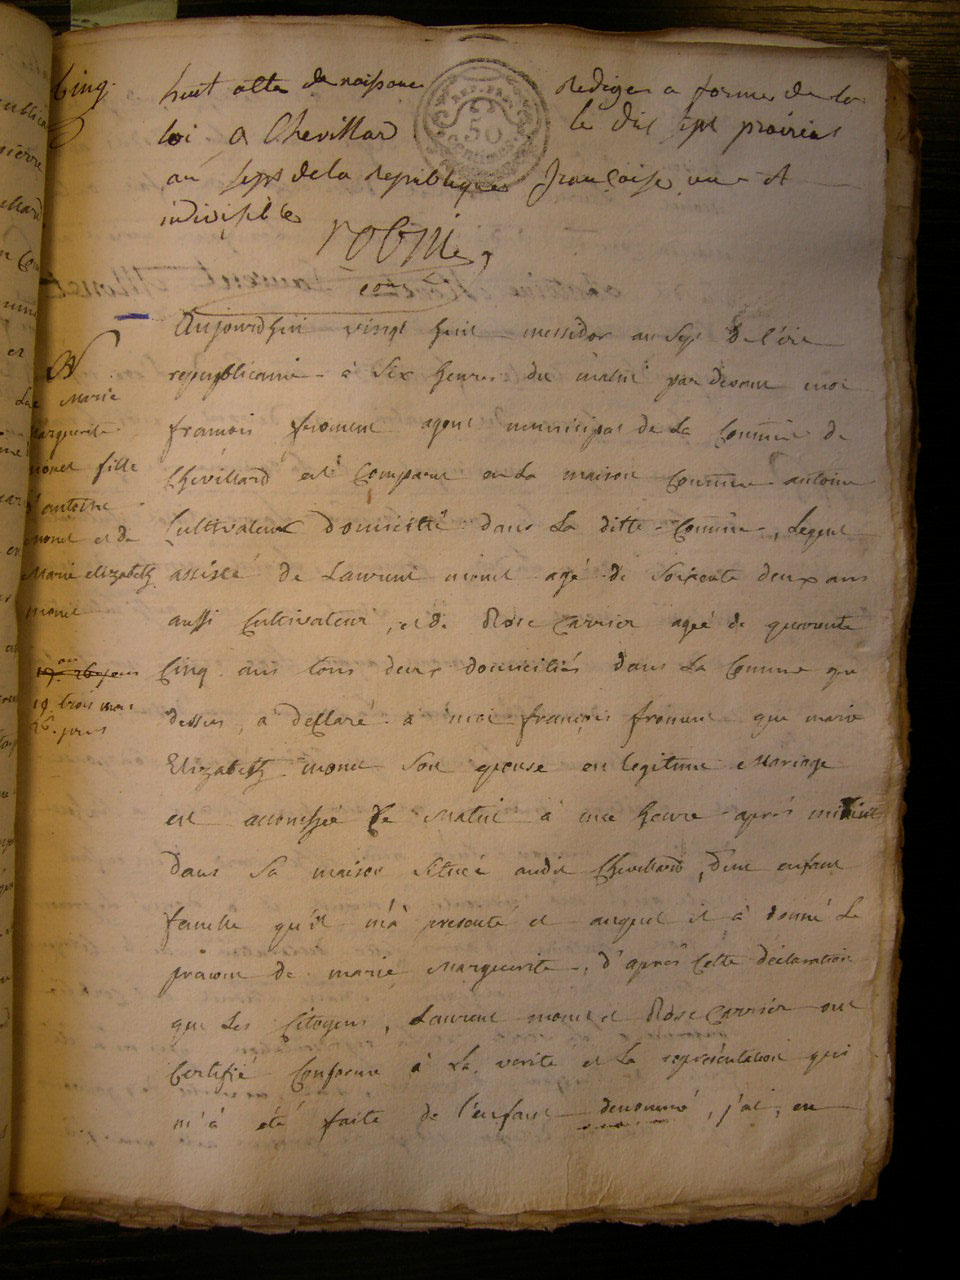 Cinq.
huit acte de naissance Rediger a forme de la
loi a Chevillard le dix sept prairial
an sept de la republique francaise une et
indivisible
REP. FRA.
50
CENTIMES
robin
Aujourdhui vingt huit messidor an sept de l'ère
republicaine à six heures du matin par devant moi
francois froment agent municipal de la Commune de
Chevillard est Comparu en la maison Commune antoine
Cultivateur Domicilié dans la ditte Commune, Lequel
assisté de Laurent monet agé de soixante deux ans
aussi Cultivateur, et de Rose Carrier agée de quarente
Cinq ans tous deux domiciliés dans la Commune que
dessus, a declaré à moi françois froment que marie
Elizabeth monet son epouse en legitime Mariage
est accouchée Ce Matin à une heure après minuit
dans sa maison située audit Chevillard, d'un enfant
femelle qu'il m'a presenté et auquel il à donné Le
prénom de marie Marguerite, d'après Cette déclaration
que Les Citoyens, Laurent monet et Rose Carrier ont
Certifié Conforme à La verite et La représentation qui
m'à été faite de l'enfant denommé, j'ai, en
N
Marie
Marguerite
monet fille
d'antoine
monet et de
Marie elizabeth
monet
19. trois mois
26. jours